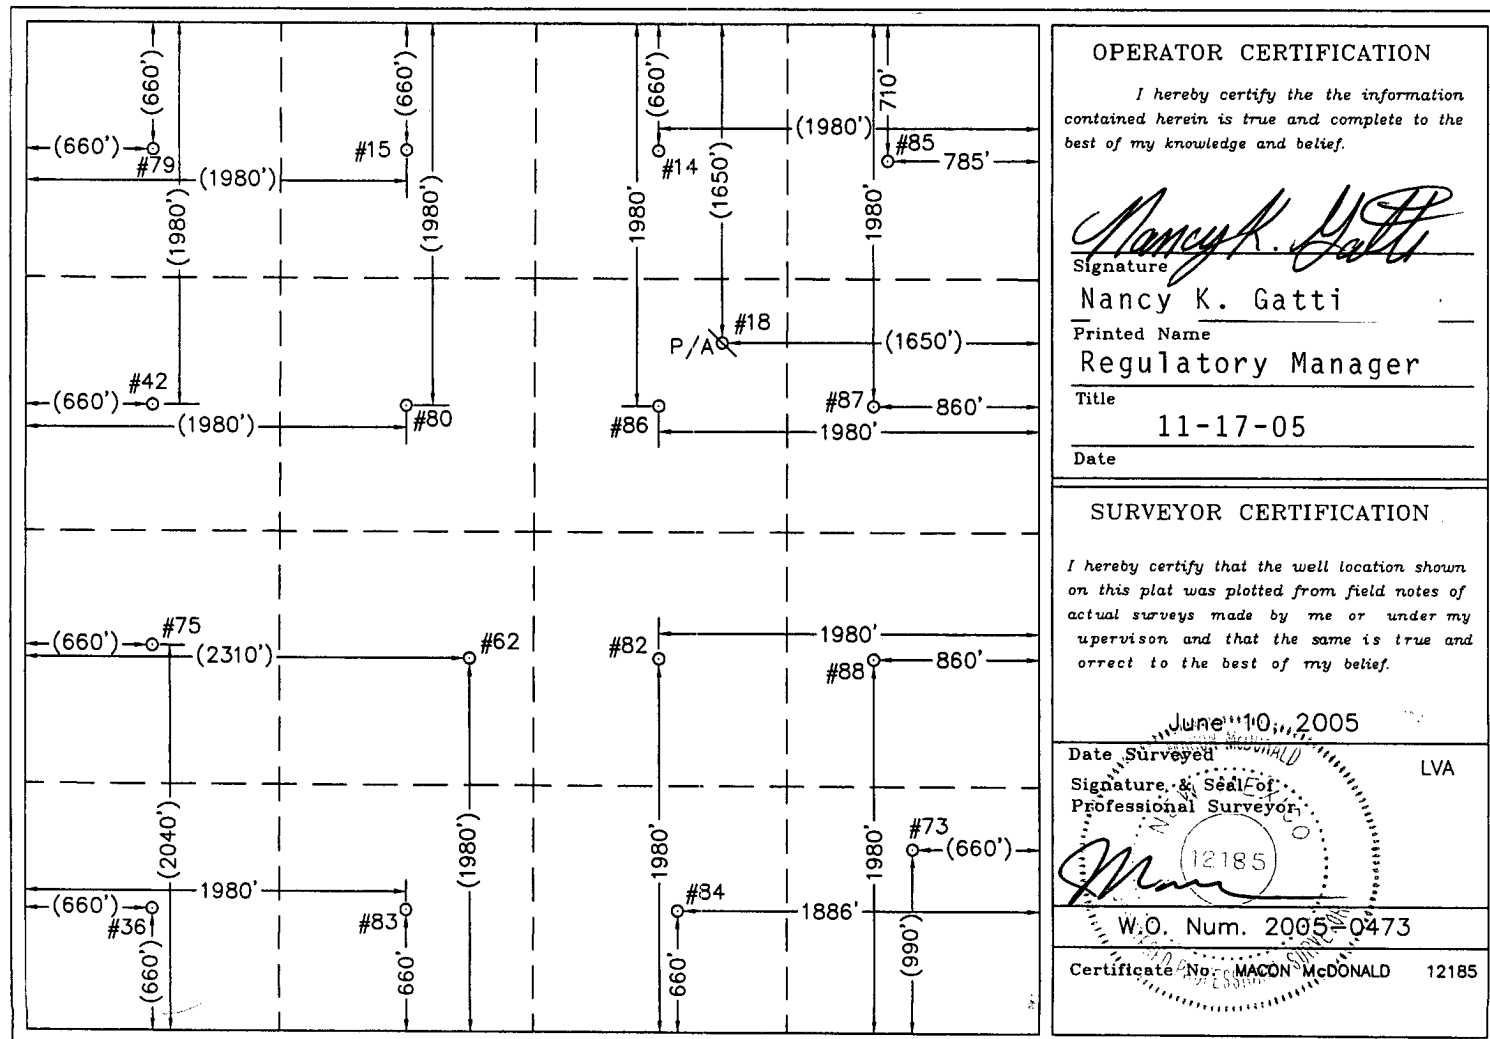 (660')
(1980')
(660')
(1980')
1980'
(660')
(1650')
1980'
710'
(660')
#79
#15
(1980')
(1980')
#14
#85
785'
#18
P/A
(1650')
(660')
#42
(1980')
#80
#86
#87
860'
1980'
(660')
#75
(2310')
#62
#82
1980'
#88
860'
(2040')
(1980')
1980'
1980'
#73
(660')
(990')
1980'
(660')
#36
(660')
#83
660'
#84
1886'
660'
OPERATOR CERTIFICATION
I hereby certify the the information
contained herein is true and complete to the
best of my knowledge and belief.
Nancy K. Gatti
Signature
Nancy K. Gatti
Printed Name
Regulatory Manager
Title
11-17-05
Date
SURVEYOR CERTIFICATION
I hereby certify that the well location shown
on this plat was plotted from field notes of
actual surveys made by me or under my
upervison and that the same is true and
orrect to the best of my belief.
June 10, 2005
Date Surveyed
LVA
Signature & Seal of
Professional Surveyor
MACON McDONALD
NEW MEXICO
12185
PROFESSIONAL SURVEYOR
W.O. Num. 2005-0473
Certificate No. MACON McDONALD 12185